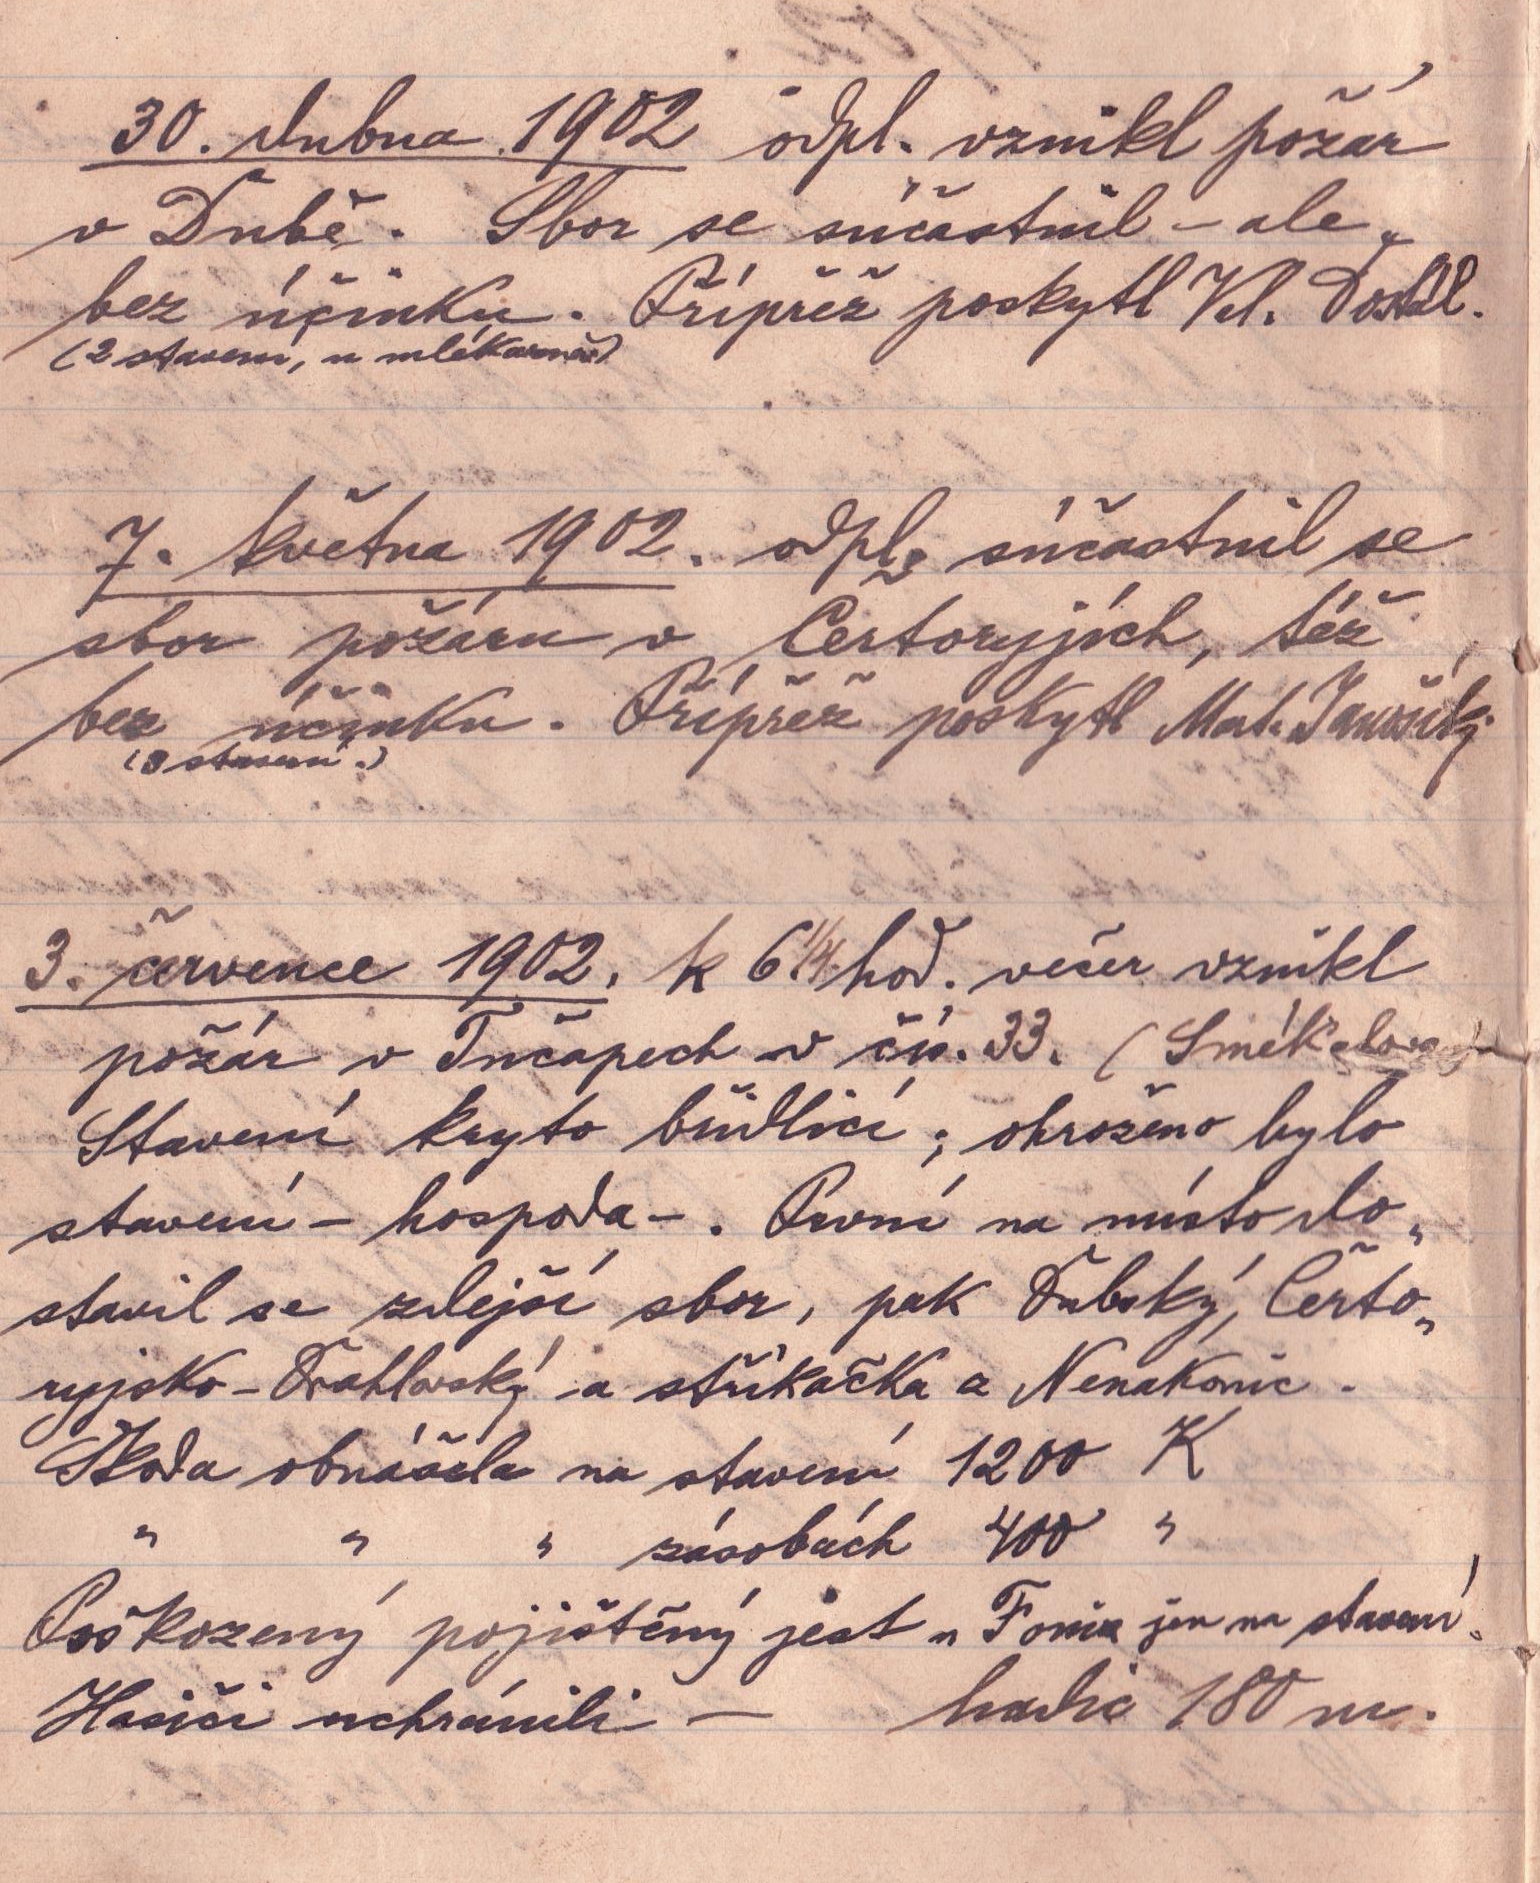 30. dubna 1902 odpl. vznikl požár
v Dubě. Sbor se súčastnil – ale
bez účinku. Přípřež poskytl Vl. Dostál.
(2 stavení, u mlékárně)
7. května 1902. odpl. súčastnil se
sbor požáru v Čertoryjích, též
bez účinku. Přípřež poskytl Mat. Janošík
(3 stavení.)
3. července 1902. k 6 1/4 hod. večer vznikl
požár v Tučapech v čís. 33. (Smékalova)
Stavení kryto břidlicí; ohroženo bylo
stavení – hospoda –. První na místo do„
stavil se zdejší sbor, pak Dubský, Čerto„
ryjsko – Drahlovský a stříkačka a Nenakonic.
Škoda obnášela na stavení 1200 K
" " " zásobách 400 "
Poškozený pojištěný jest u Fonix jen na stavení.
Hasiči uchránili — hadic 180 m.